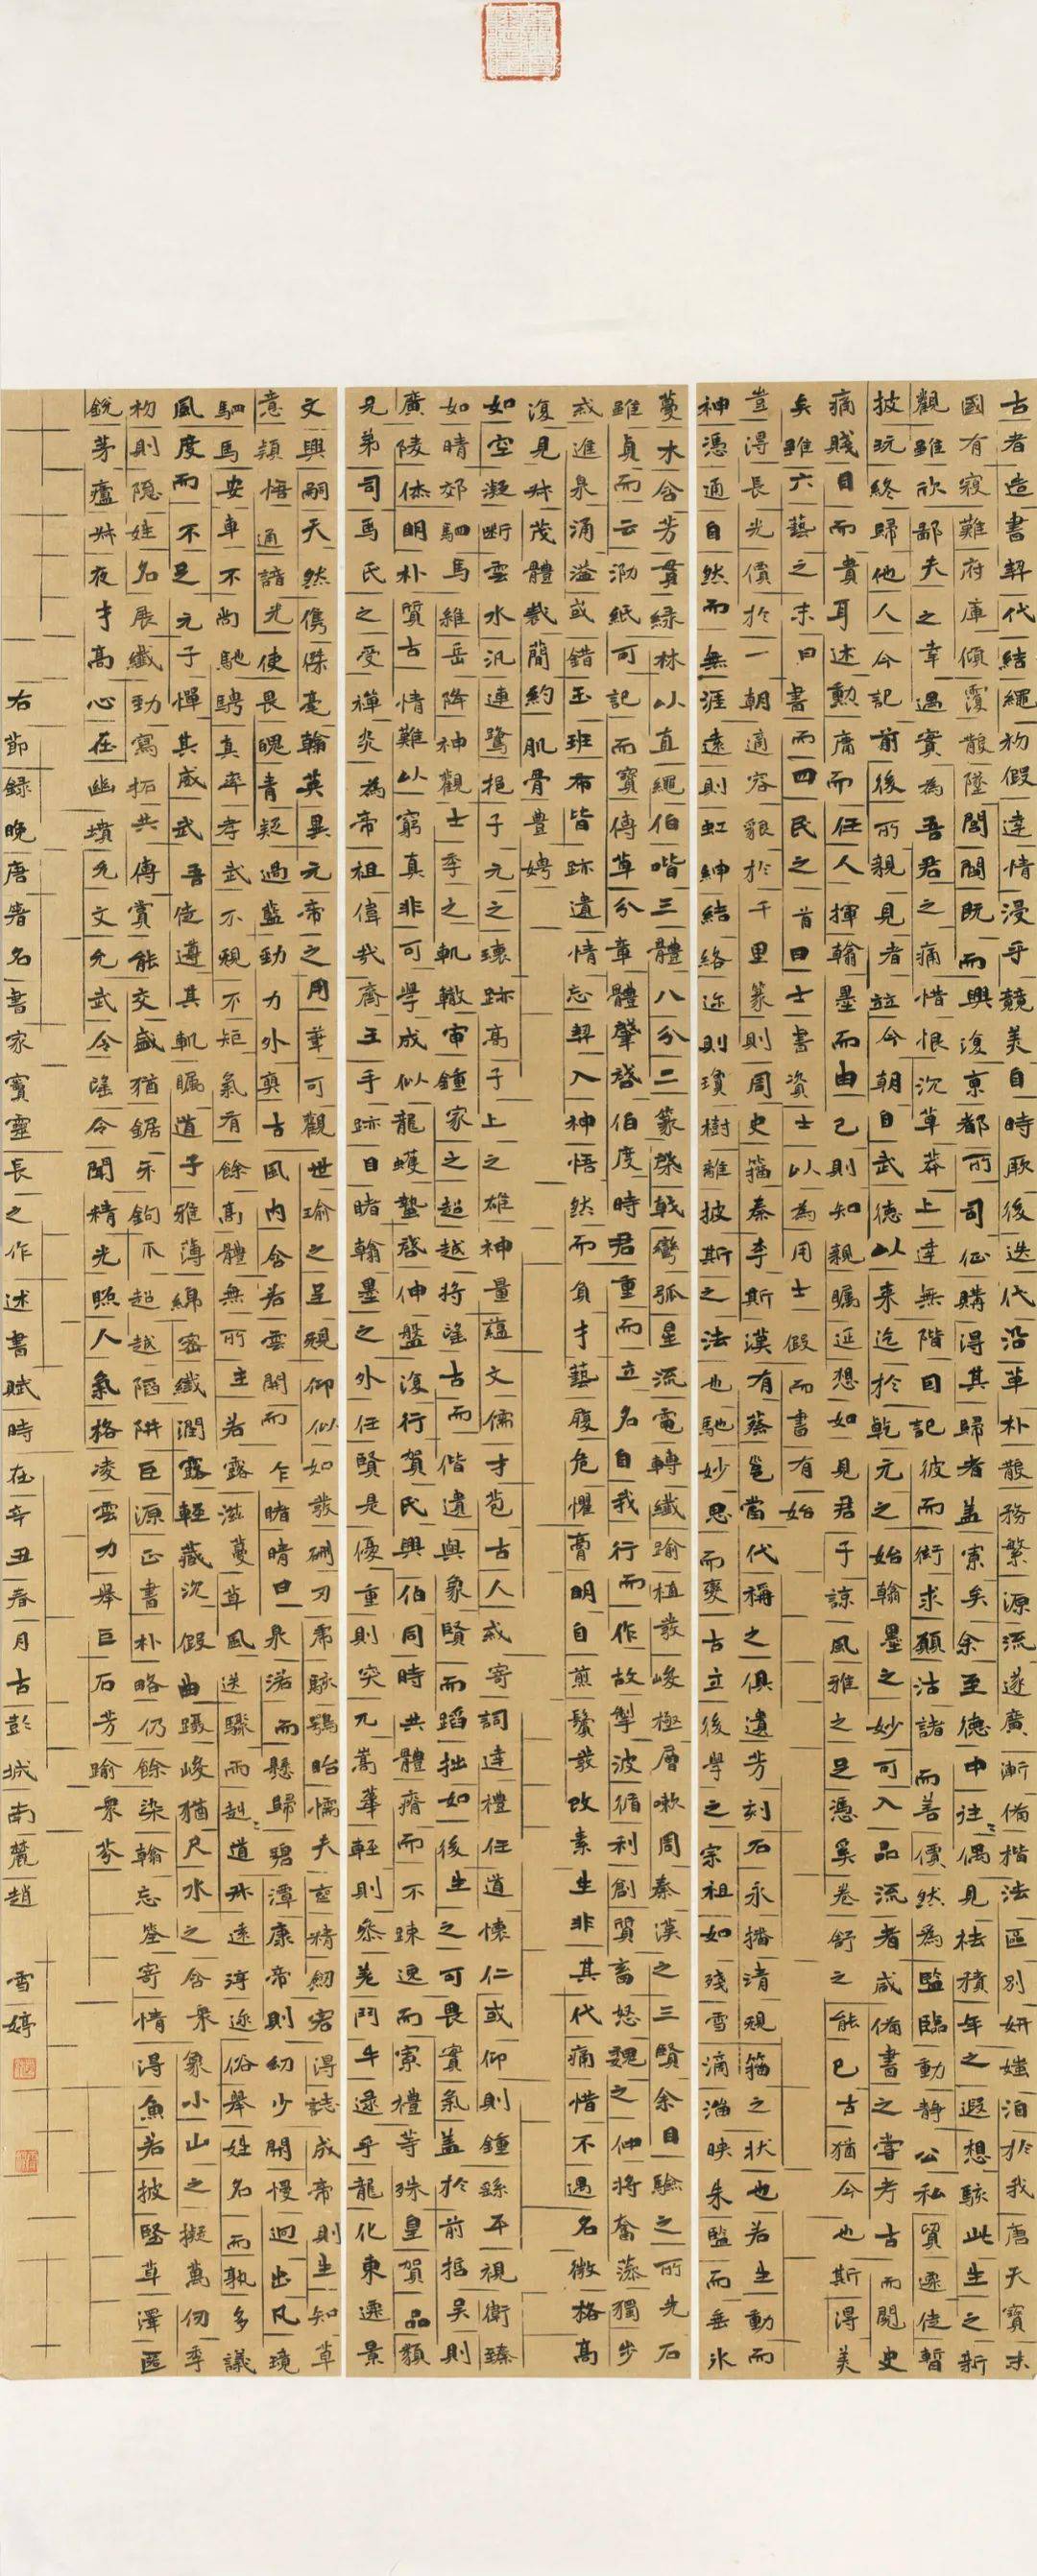 古者造書契代結繩初假達情浸乎競美自時厥後迭代沿革朴散務繁源流遂廣漸備楷法區別妍媸洎於我唐天寶末
國有寇難府庫傾覆散墜閭閻既而興復京都所司征購得其歸者盖寡矣余至德中往往偶見祛積年之遐想駭此生之新
觀雖欣鄙夫之幸遇實為吾君之痛惜恨沉草莽上達無階因記彼而衒求願沽諸而善價然為監臨動靜公私貿遷徒暫
披玩終歸他人今記前後所親見者並今朝自武德以來迄於乾元之始翰墨之妙可入品流者咸備書之嘗考古而閱史
痛賤目而貴耳述勲庸而任人揮翰墨而由己則知親矚延想如見君子諒風雅之足憑奚卷舒之能已古猶今也斯得美
矣雖六藝之末曰書而四民之首曰士書資士以為用士假而書有始
豈得長光價於一朝適容貌於千里篆則周史籀秦李斯漢有蔡邕當代稱之俱遺芳刻石永播清規籀之狀也若生動而
神憑通自然而無涯遠則虹紳結絡迩則瓊樹離披斯之法也馳妙思而變古立後學之宗祖如殘雪滴溜映朱監而垂氷
蔓木含芳貫綠林以直繩伯喈三體八分二篆棨戟彎弧星流電轉纖踰植發峻極層嗽周秦漢之三賢余目驗之所先石
雖貞而云泐紙可記而寶傳草分章體肇啓伯度時君重而立名自我行而作故掣波循利創質畜怒魏之仲將奮藻獨步
或進泉涌溢或錯玉班布皆跡遺情忘契入神悟然而負才藝履危懼膏明自煎鬢發改素生非其代痛惜不遇名微格高
復見舛茂體裁簡約肌骨豊娉
如空凝断雲水汎連鷺挹子元之瓌跡高子上之雄神量蘊文儒才苞古人或寄詞達禮任道懷仁或仰則鍾繇平視衛臻
如晴郊駟馬維岳降神觀士季之軌轍審鍾家之超越將遥古而偕遺與象賢而蹈拙如後生之可畏實氣蓋於前哲吴則
廣陵休明朴質古情難以窮真非可學成似龍蠖蟄啓伸盤復行賀氏興伯同時共體瘠而不疎逸而寡禮等殊皇賀品類
兄弟司馬氏之受禪炎為帝祖偉哉齊王手跡目睹翰墨之外任賢是優重則突兀嵩華輕則参差鬥牛逯乎龍化東遷景
文興嗣天然儁傑毫翰英異元帝之用筆可觀世瑜之呈規仰似如發硎刃虎駭鶚眙懦夫喪精劒客得誌成帝則生知草
意穎悟通諳光使畏魄青疑過藍勁力外爽古風內含若雲開而乍睹晴日泉落而懸歸碧潭康帝則幼少開慢迥出凡境
駟馬安車不尚馳騁真率孝武不規不矩氣有餘高體無所主若露滋蔓草風送驟而赳道舛遠淳迩俗舉姓名而孰多議
風度而不足元子憚其威武吾徒遵其軌矚道子雅薄綿密纖潤露輕藏沉假曲躡峻猶尺水之含衆象小山之擬萬仞季
初則隐姓名展纖勁寫拓共傳賞能交盛猶鋸牙鉤爪超越陷阱巨源正書朴略仍餘染翰忘筌寄情得魚若披豎草澤匡
銳茅蘆舛夜才高心在幽墳允文允武令謠令聞精光照人氣格凌雲力舉巨石芳踰衆芬
右節録晚唐著名書家竇靈長之作述書賦時在辛丑春月古彭城南麓趙雪婷